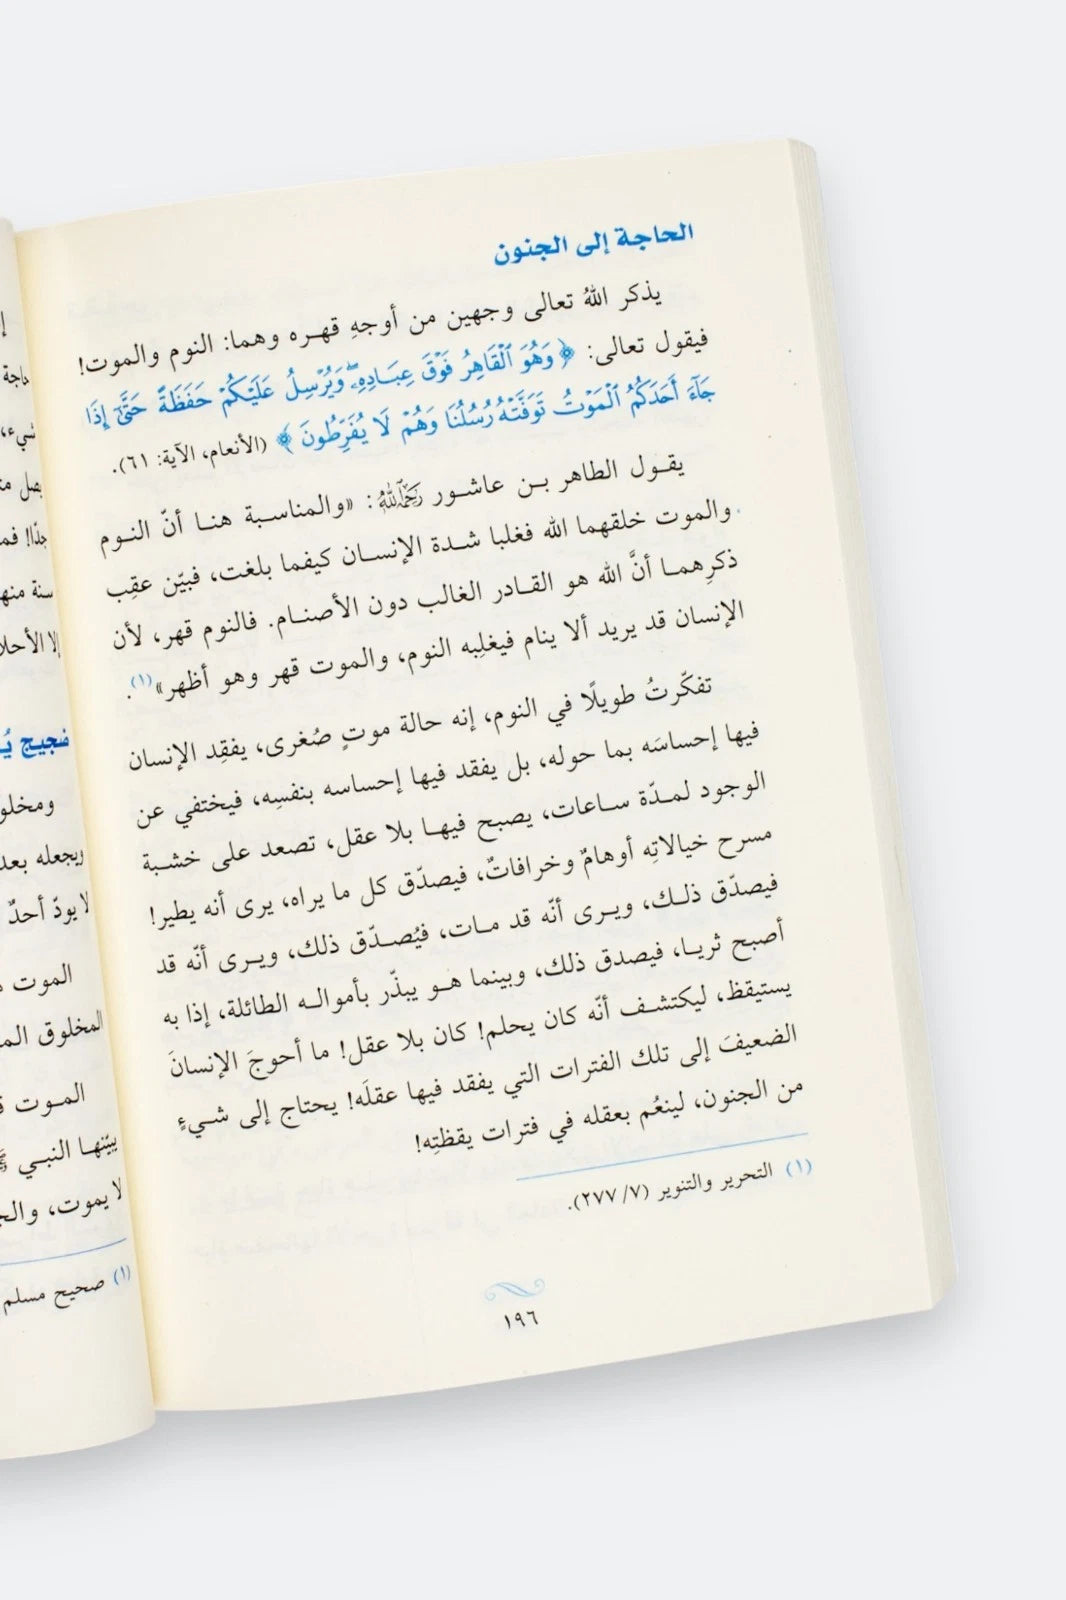 الحاجة إلى الجنون
يذكر اللهُ تعالى وجهين من أوجهِ قهره وهما: النوم والموت!
فيقول تعالى: ﴿وَهُوَ ٱلْقَاهِرُ فَوْقَ عِبَادِهِۦۖ وَيُرْسِلُ عَلَيْكُمْ حَفَظَةً حَتَّىٰٓ إِذَا
جَآءَ أَحَدَكُمُ ٱلْمَوْتُ تَوَفَّتْهُ رُسُلُنَا وَهُمْ لَا يُفَرِّطُونَ﴾ (الأنعام، الآية: ٦١).
يقول الطاهر بن عاشور رَحِمَهُ ٱللَّهُ: «والمناسبة هنا أنّ النوم
والموت خلقهما الله فغلبا شدة الإنسان كيفما بلغت، فبيّن عقِب
ذكرِهما أنَّ الله هو القادر الغالب دون الأصنام. فالنوم قهر، لأن
الإنسان قد يريد ألا ينام فيغلِبه النوم، والموت قهر وهو أظهر»(١).
تفكّرتُ طويلًا في النوم، إنه حالة موتٍ صُغرى، يفقِد الإنسان
فيها إحساسَه بما حوله، بل يفقد فيها إحساسه بنفسِه، فيختفي عن
الوجود لمدّة ساعات، يصبح فيها بلا عقل، تصعد على خشبة
مسرح خيالاتِه أوهامٌ وخرافاتٌ، فيصدّق كل ما يراه، يرى أنه يطير!
فيصدّق ذلك، ويرى أنّه قد مات، فيُصدّق ذلك، ويرى أنّه قد
أصبح ثريا، فيصدق ذلك، وبينما هو يبذّر بأمواله الطائلة، إذا به
يستيقظ، ليكتشف أنّه كان يحلم! كان بلا عقل! ما أحوجَ الإنسانَ
الضعيفَ إلى تلك الفترات التي يفقد فيها عقلَه! يحتاج إلى شيءٍ
من الجنون، لينعُم بعقله في فترات يقظتِه!
(١) التحرير والتنوير (٧/ ٢٧٧).
١٩٦
سنة منه
إلا الأحلا
ومخلو
ويجعله بعد
لا يودّ أحدٌ
الموت
المخلوق الم
الموت
يبيّنها النبي ﷺ
لا يموت، والج
(١) صحيح مسلم